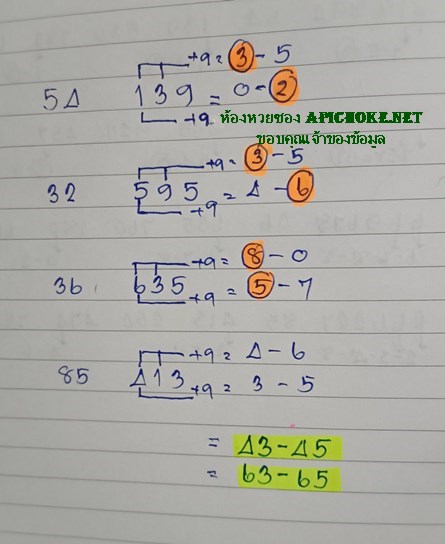 +9 = 3 - 5
54 139 = 0 - 2
+9
ห้องหวยซอง APICHOKE.NET
ขอบคุณเจ้าของข้อมูล
+9 = 3 - 5
32 595 = 4 - 6
+9
+9 = 8 - 0
36 635
+9 = 5 - 7
+9 = 4 - 6
85 413
+9 = 3 - 5
= 43 - 45
= 63 - 65